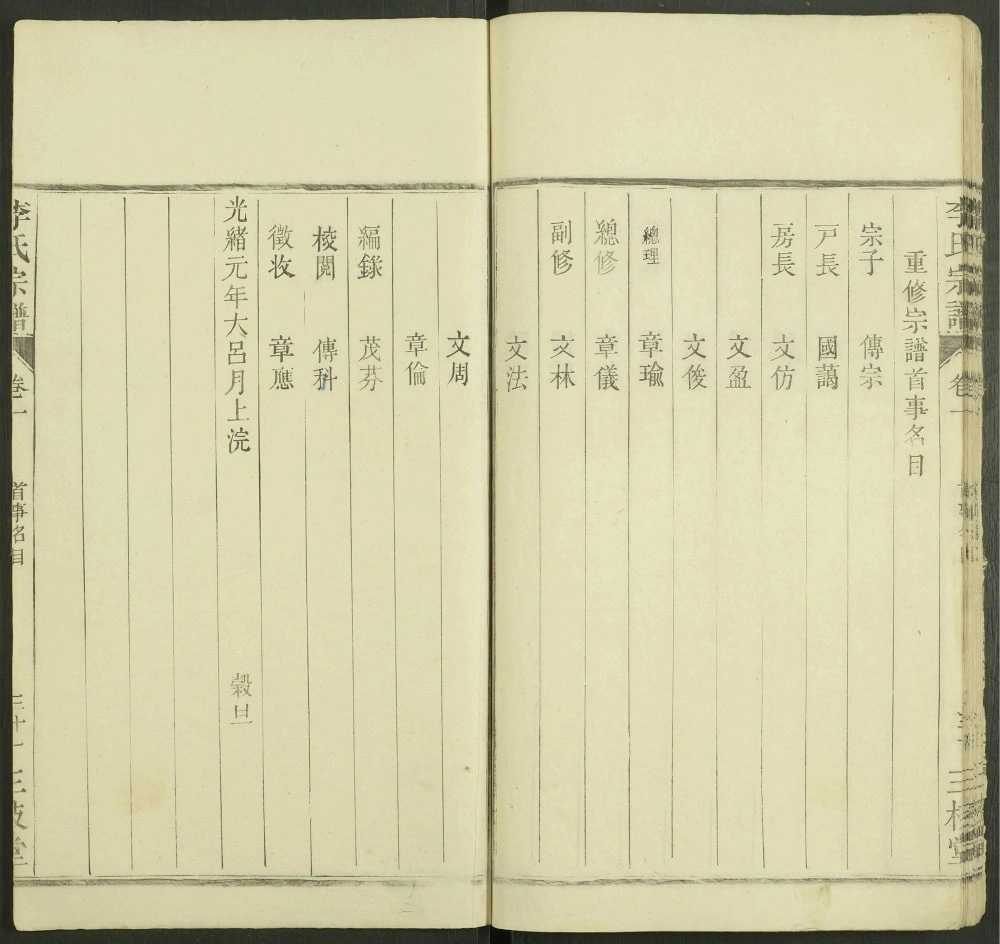 重修宗譜首事名目
宗子 傳宗
戸長 國藹
房長 文仿
文盈
文俊
總理 章瑜
總修 章儀
副修 文林
文法
文周
章倫
編錄 茂芬
校閱 傳科
徵收 章應
光緒元年大呂月上浣 榖旦
李氏宗譜 卷一 首事名目 三十一 三枝堂